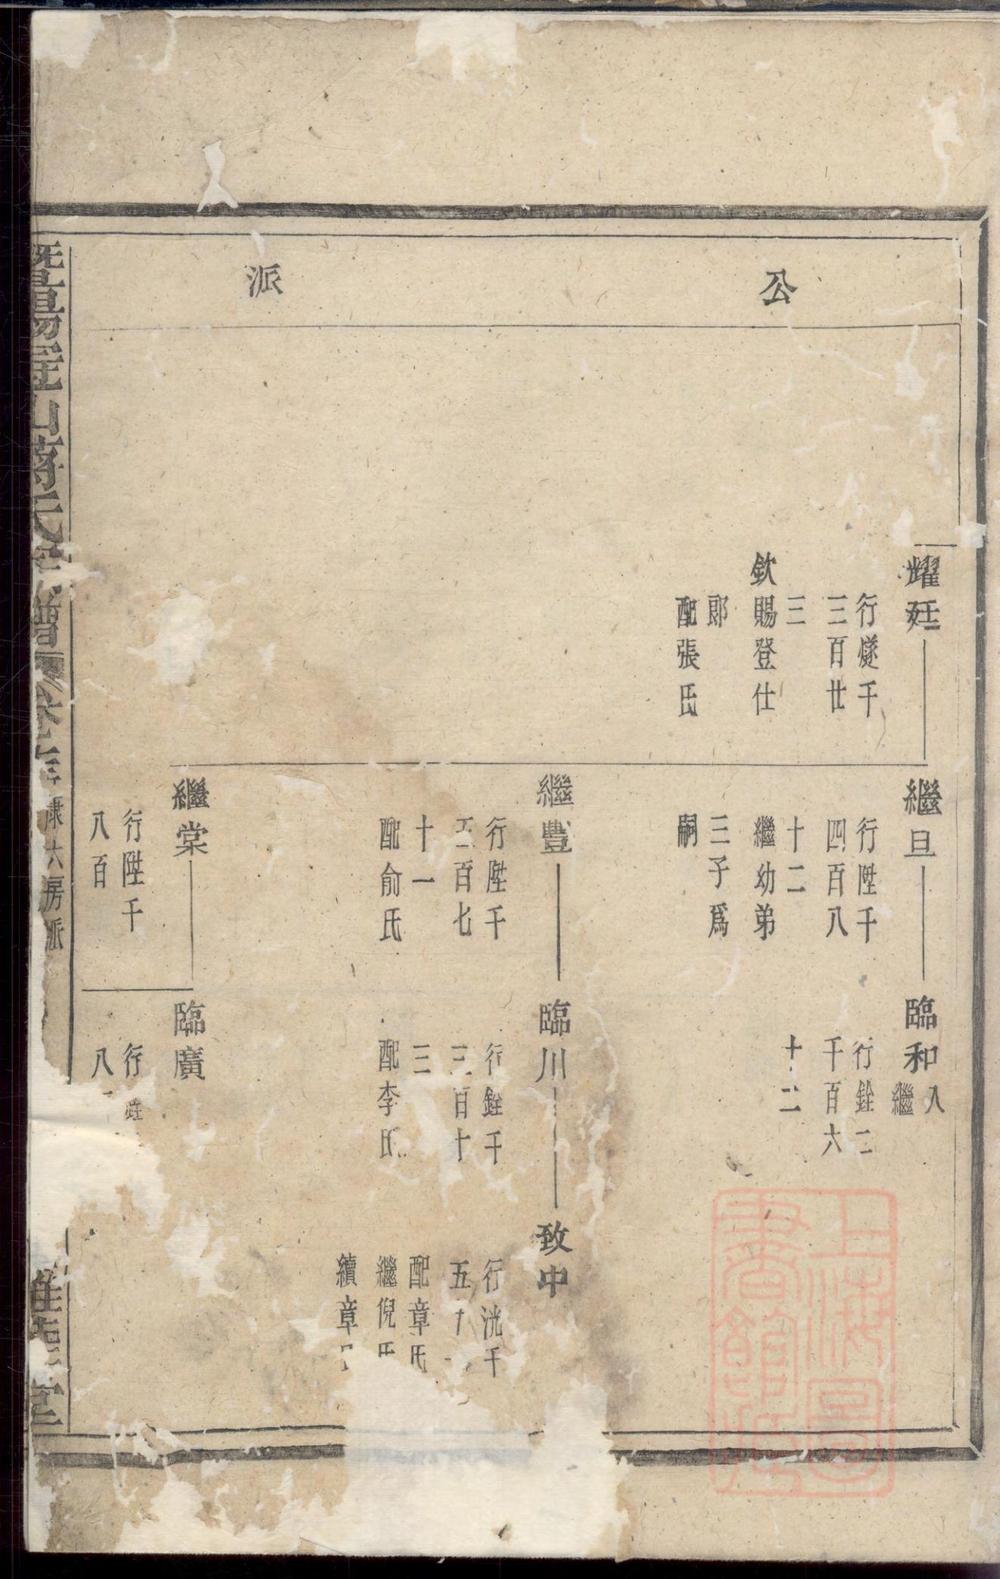 公
派
耀廷
行燧千
三百廿
三
欽賜登仕
郎
配張氏
繼旦
行陞千
四百八
十二
繼幼弟
三子爲
嗣
繼豐
行陞千
百七
十一
配俞氏
繼棠
行陞千
八百
臨和
入
繼
行銓二
千百六
十二
臨川
行銓千
三百十
三
配李氏
臨廣
行
八
致中
行洸千
五十
配章氏
繼倪氏
續章
暨陽
山蔣氏
譜
房派
堂
上海圖書館藏